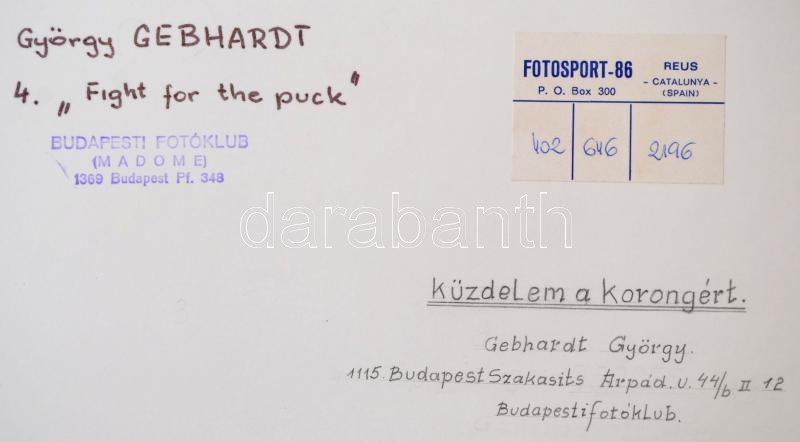 György GEBHARDT
4. „Fight for the puck"
BUDAPESTI FOTÓKLUB
(MADOME)
1369 Budapest Pf. 348
FOTOSPORT-86
P. O. Box 300
REUS
- CATALUNYA -
(SPAIN)
402 646 2196
darabanth
Küzdelem a Korongért.
Gebhardt György.
1115. Budapest Szakasits Árpád. u. 44/b II 12
Budapesti fotóklub.